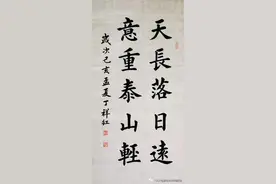 天長落日遠
意重泰山輕
歲次己亥孟夏丁祥紅